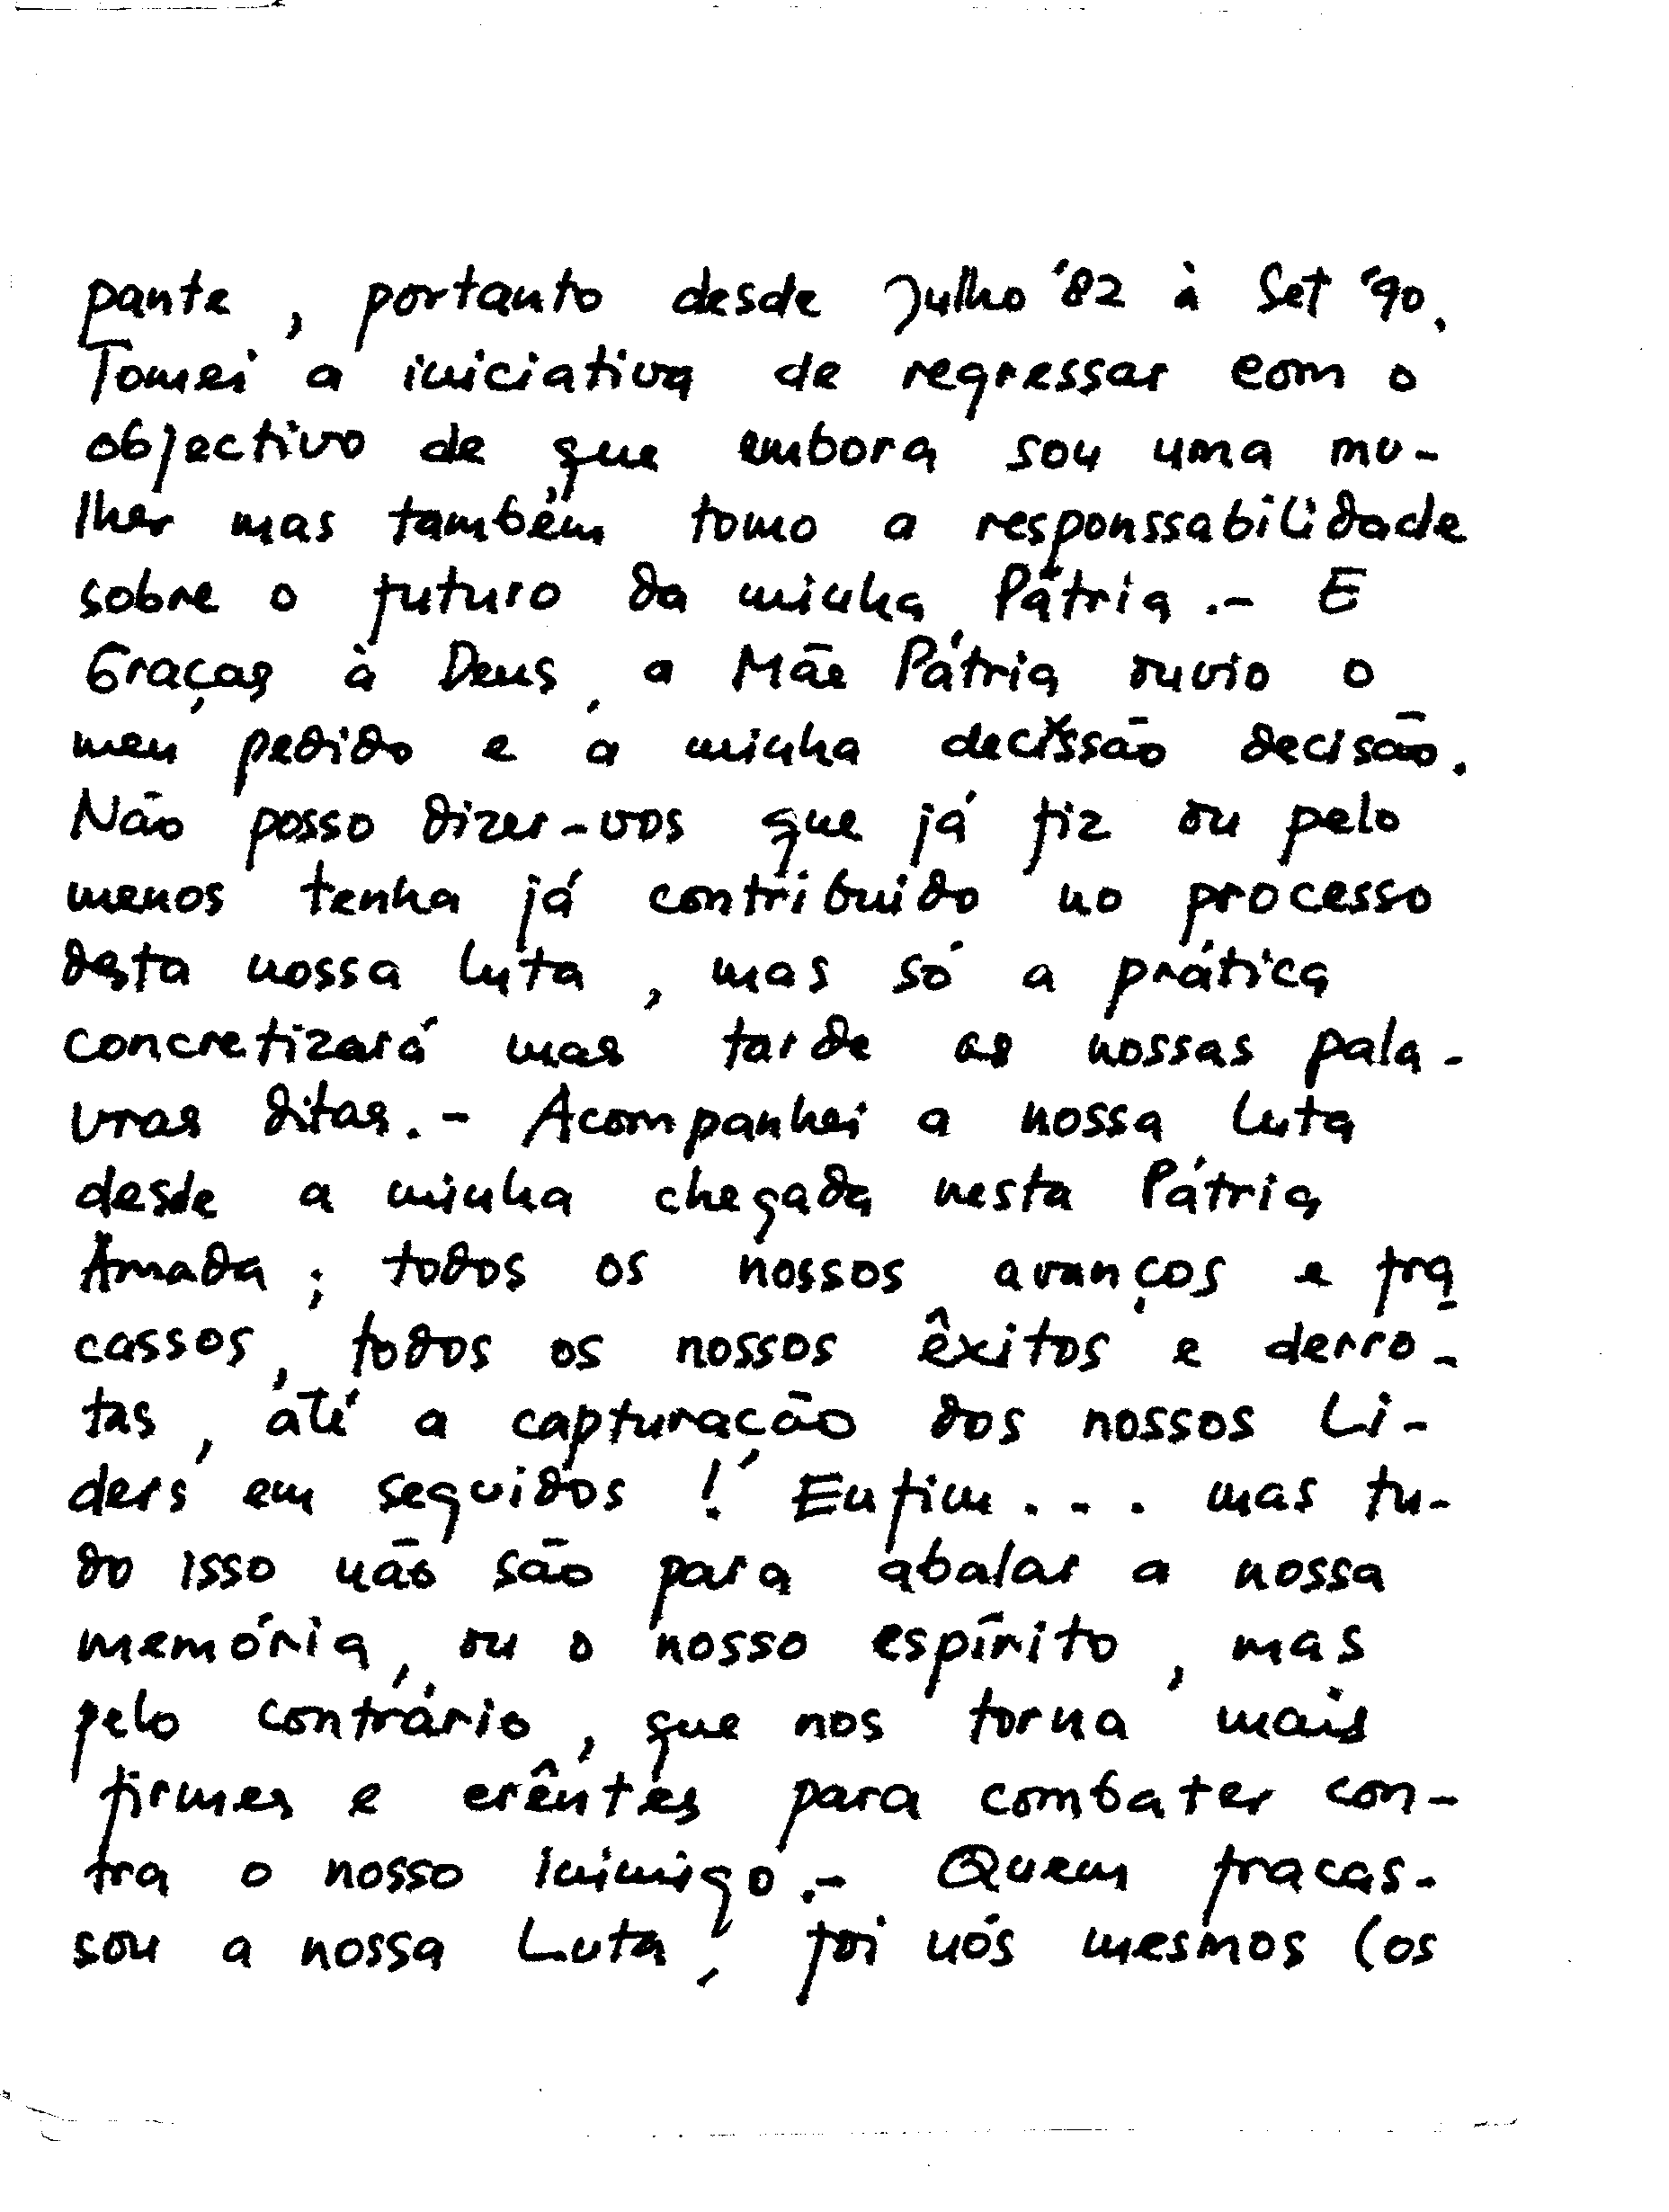 pante, portanto desde Julho '82 à Set '90.
Tomei a iniciativa de regressar com o
objectivo de que embora sou uma mu-
lher mas também tomo a responssabilidade
sobre o futuro da minha Pátria.- E
Graças à Deus, a Mãe Pátria ouvio o
meu pedido e a minha decissão decisão.
Não posso dizer-vos que já fiz ou pelo
menos tenha já contribuido no processo
desta nossa luta, mas só a prática
concretizará mas tarde as nossas pala-
vras ditas.- Acompanhei a nossa luta
desde a minha chegada nesta Pátria
Amada; todos os nossos avanços e fra
cassos, todos os nossos êxitos e derro-
tas, até a capturação dos nossos Li-
ders em seguidos! Enfim... mas tu-
do isso não são para abalar a nossa
memória, ou o nosso espírito, mas
pelo contrário, que nos torna mais
firmes e crêntes para combater con-
tra o nosso inimigo.- Quem fracas-
sou a nossa Luta, foi nós mesmos (os